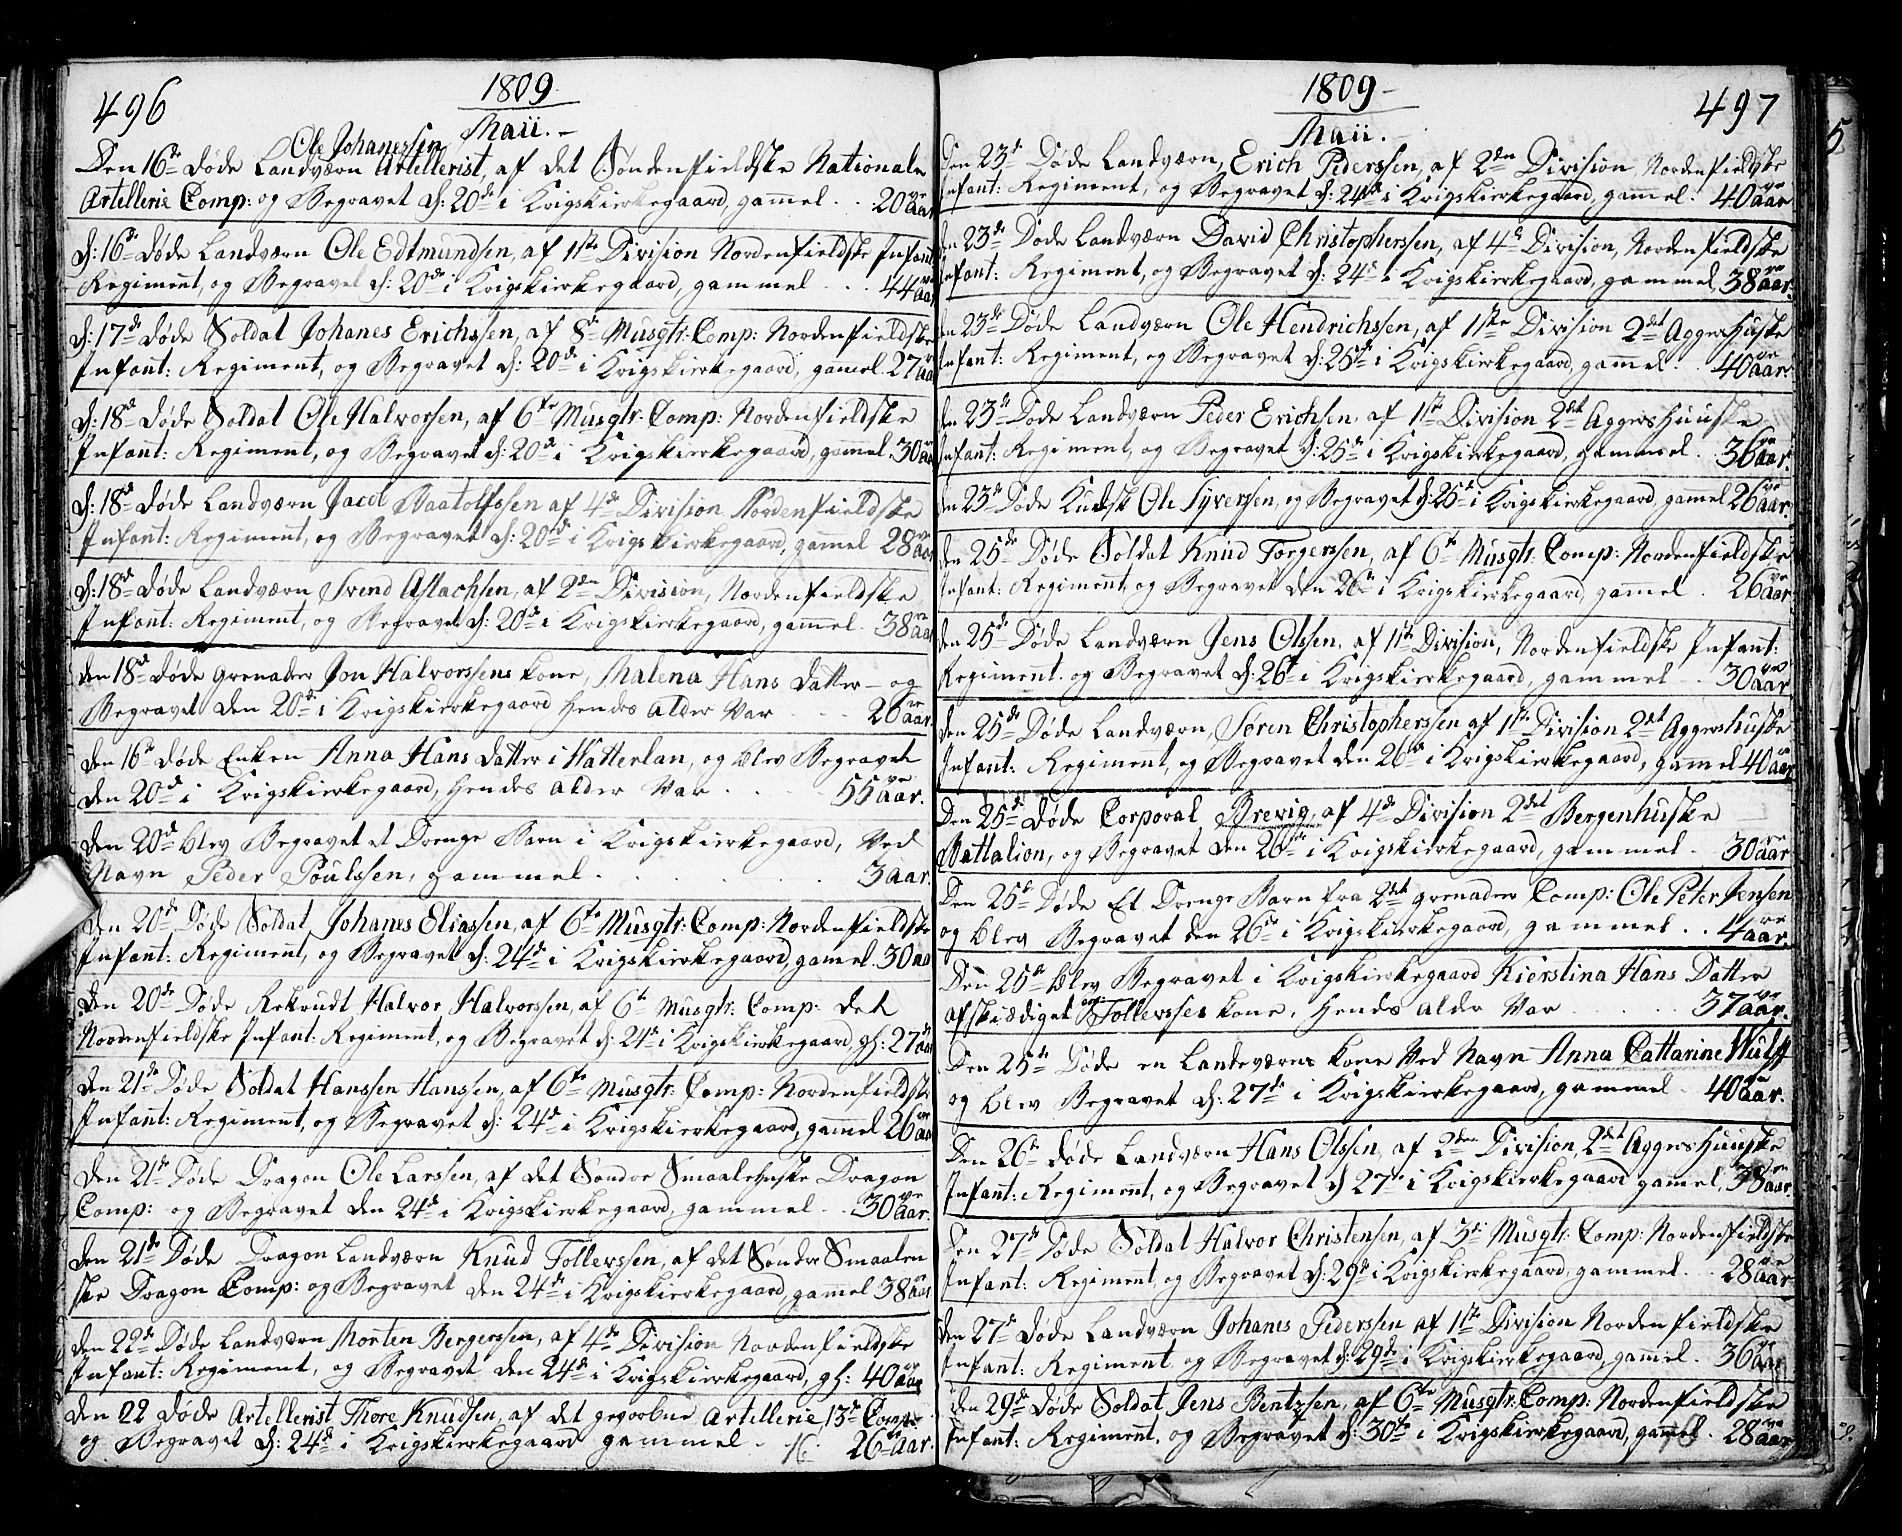 496
1809
Maii.
Ole Johanessen
Den 16de Døde Landværn Artellerist, af det Søndenfieldske Nationale
Artellerie Comp: og Begravet d: 20de i Krigskierkegaard, gammel . . 20 aar
d: 16de Døde Landværn Ole Edtmundsen, af 1ste Division Nordenfieldske Infant:
Regiment, og Begravet d: 20de i Krigskierkegaard, gammel . . . 44 aar
d: 17de Døde Soldat Johanes Erichssen, af 8de Musqtr: Comp: Nordenfieldske
Infant: Regiment, og Begravet d: 20de i Krigskierkegaard, gamel. 27 aar
d: 18de Døde Soldat Ole Halvorsen, af 6te Musqtr: Comp: Nordenfieldske
Infant: Regiment, og Begravet d: 20de i Krigskierkegaard, gamel. 30 aar
d: 18de Døde Landværn Jacob Baatolfssen af 4de Division Nordenfieldske
Infant: Regiment, og Begravet d: 20de i Krigskierkegaard, gamel 28 aar
d: 18de Døde Landværn Svend Aslachsen, af 2den Division, Nordenfieldske
Infant: Regiment, og Begravet d: 20de i Krigskierkegaard, gamel. 38 aar
den 18de Døde Grenader Jon Halvorssens kone, Malena Hans Datter - og
Begravet den 20de i Krigskierkegaard hendes alder var . . . 26 aar.
den 16de Døde Enken Anna Hans datter i Watterlan, og blev Begravet
den 20de i Krigskierkegaard, hendes alder var . . . 55 aar.
den 20de blev Begravet et Drenge Barn i Krigskierkegaard, ved
Navn Peder Poulssen, gammel . . . . . 3 aar.
den 20de Døde Soldat Johanes Eliassen, af 6te Musqtr: Comp: Nordenfieldske
Infant: Regiment, og Begravet d: 24de i Krigskierkegaard, gamel. 30 aar
den 20de Døde Rekrudt Halvor Halvorssen, af 6te Musqtr: Comp: det
Nordenfieldske Infant: Regiment, og Begravet d: 24de i Krigskierkegaard, gl: 27 aar
den 21de Døde Soldat Hanssen Hanssen, af 6te Musqtr: Comp: Nordenfieldske
Infant: Regiment, og Begravet d: 24de i Krigskierkegaard, gamel 26 aar
den 21de Døde Dragon Ole Larssen, af det Søndre Smaalehnske Dragon
Comp: og Begravet den 24de i Krigskierkegaard, gammel . . 30 aar.
den 21de Døde Dragon Landværn Knud Tollerssen, af det Søndre Smaalen
ske Dragon Comp: og Begravet den 24de i Krigskierkegaard, gamel 38 aar
den 22de Døde Landværn Morten Bergerssen, af 4de Division Nordenfieldske
Infant: Regiment, og Begravet den 24de i Krigskierkegaard, gl: 40 aar
den 22 Døde Artellerist Thore Knudsen, af det gevorbne Artellerie 13de Comp:
og Begravet d: 24de i Krigskierkegaard gammel . . 26 aar.
1809
497
Maii.
Den 23de Døde Landværn, Erich Pederssen, af 2den Division Nordenfieldske
Infant: Regiment, og Begravet d: 24de i Krigskierkegaard, gamel. 40 aar
den 23de Døde Landværn David Christopherssen, af 4de Division, Nordenfieldske
Infant: Regiment, og Begravet d: 24de i Krigskierkegaard, gammel, 38 aar.
den 23de Døde Landværn Ole Hendrichssen, af 1ste Division 2det Aggershuske
Infant: Regiment, og Begravet d: 25de i Krigskierkegaard, gamel . 40 aar.
den 23de Døde Landværn Peder Erichsen, af 1ste Division 2det Aggershuuske
Infant: Regiment, og Begravet d: 25de i Krigskierkegaard, gammel . 36 aar.
den 23de Døde Kudsk Ole Syversen, og Begravet d: 25de i Krigskierkegaard, gamel 26 aar.
den 25de Døde Soldat Knud Torgerssen, af 6te Musqtr: Comp: Nordenfieldske
Infant: Regiment, og Begravet den 26de i Krigskierkegaard gamel . 26 aar
den 25de Døde Landværn Jens Olssen, af 1ste Division, Nordenfieldske Infant:
Regiment. og Begravet d: 26de i Krigskierkegaard, gammel . . 30 aar
den 25de Døde Landværn, Søren Christopherssen af 1ste Division 2det Aggershuske
Infant: Regiment, og Begravet den 26de i Krigskierkegaard, gamel 40 aar
Den 25de Døde Corporal Brevig, af 4de Division 2det Bergenhuske
Battalion, og Begravet den 26de i Krigskierkegaard, gammel . 30 aar
Den 25de Døde Et Drenge Barn fra 2det Grenader Comp: Ole Peter Jensen
og blev Begravet den 26de i Krigskierkegaard, gammel . . 4 aar.
Den 25de blev Begravet i Krigskierkegaard Kierstina Hans Datter
afskiediget Tollerssens kone, hendes alder var . . . 37 aar.
Den 25de Døde en Landeværns kone ved Navn Anna Cattarine Wulff
og blev Begravet d: 27de i Krigskierkegaard, gammel . 40 aar.
Den 26de Døde Landværn Hans Olssen, af 2den Division, 2det Aggershuuske
Infant: Regiment, og Begravet d 27de i Krigskierkegaard gamel, 38 aar.
Den 27de Døde Soldat Halvor Christensen, af 3die Musqtr: Comp: Nordenfieldske
Infant: Regiment, og Begravet d: 29de i Krigskierkegaard, gammel . 28 aar
den 27de Døde Landværn Johanes Pederssen af 1ste Division Nordenfieldske
Infant: Regiment og Begravet d: 29de i Krigskierkegaard, gamel. 36 aar
den 29de Døde Soldat Jens Bentzsen, af 6te Musqtr: Comp: Nordenfieldske
Infant: Regiment, og Begravet d: 30de i Krigskierkegaard, gamel. 28 aar